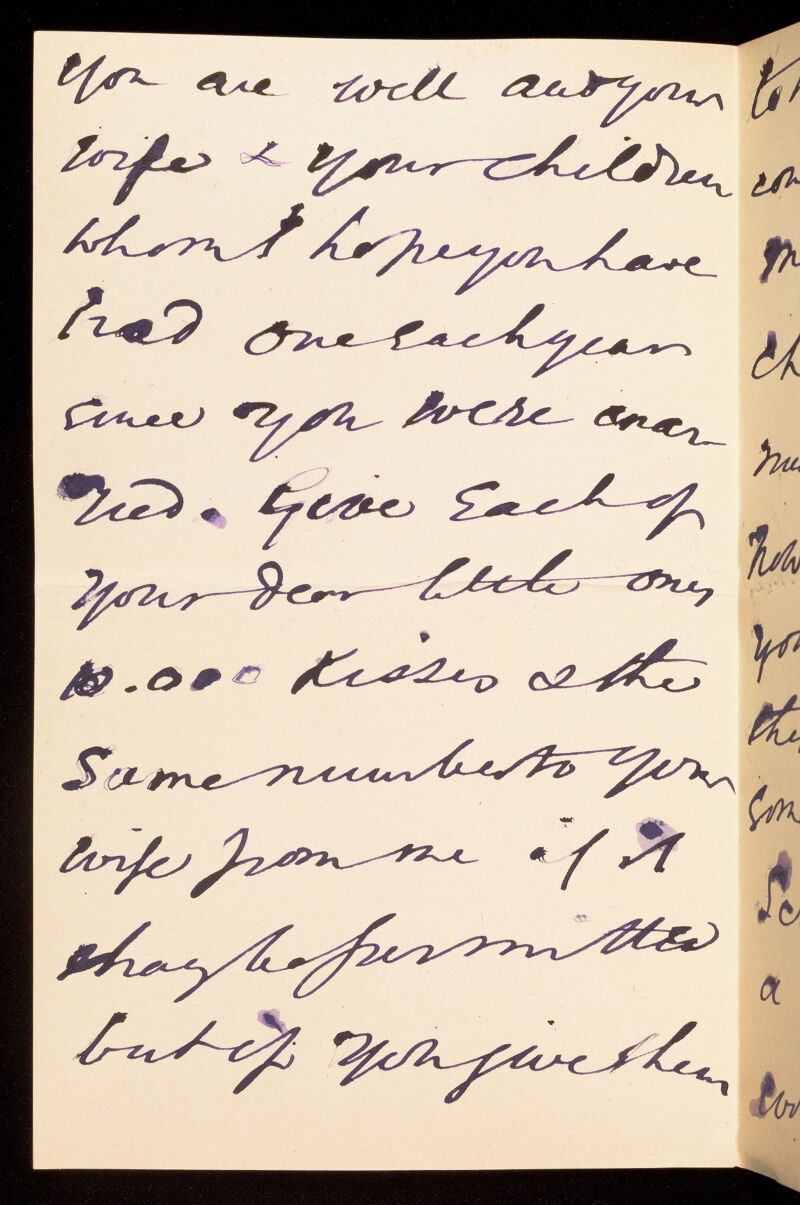 you are well and your
wife & your children
whom I hope you have
had one each year
since you were mar-
ried. Give each of
your dear little ones
10.000 Kisses & the
same number to your
wife from me if it
may be permitted
but if you give them
ch
a